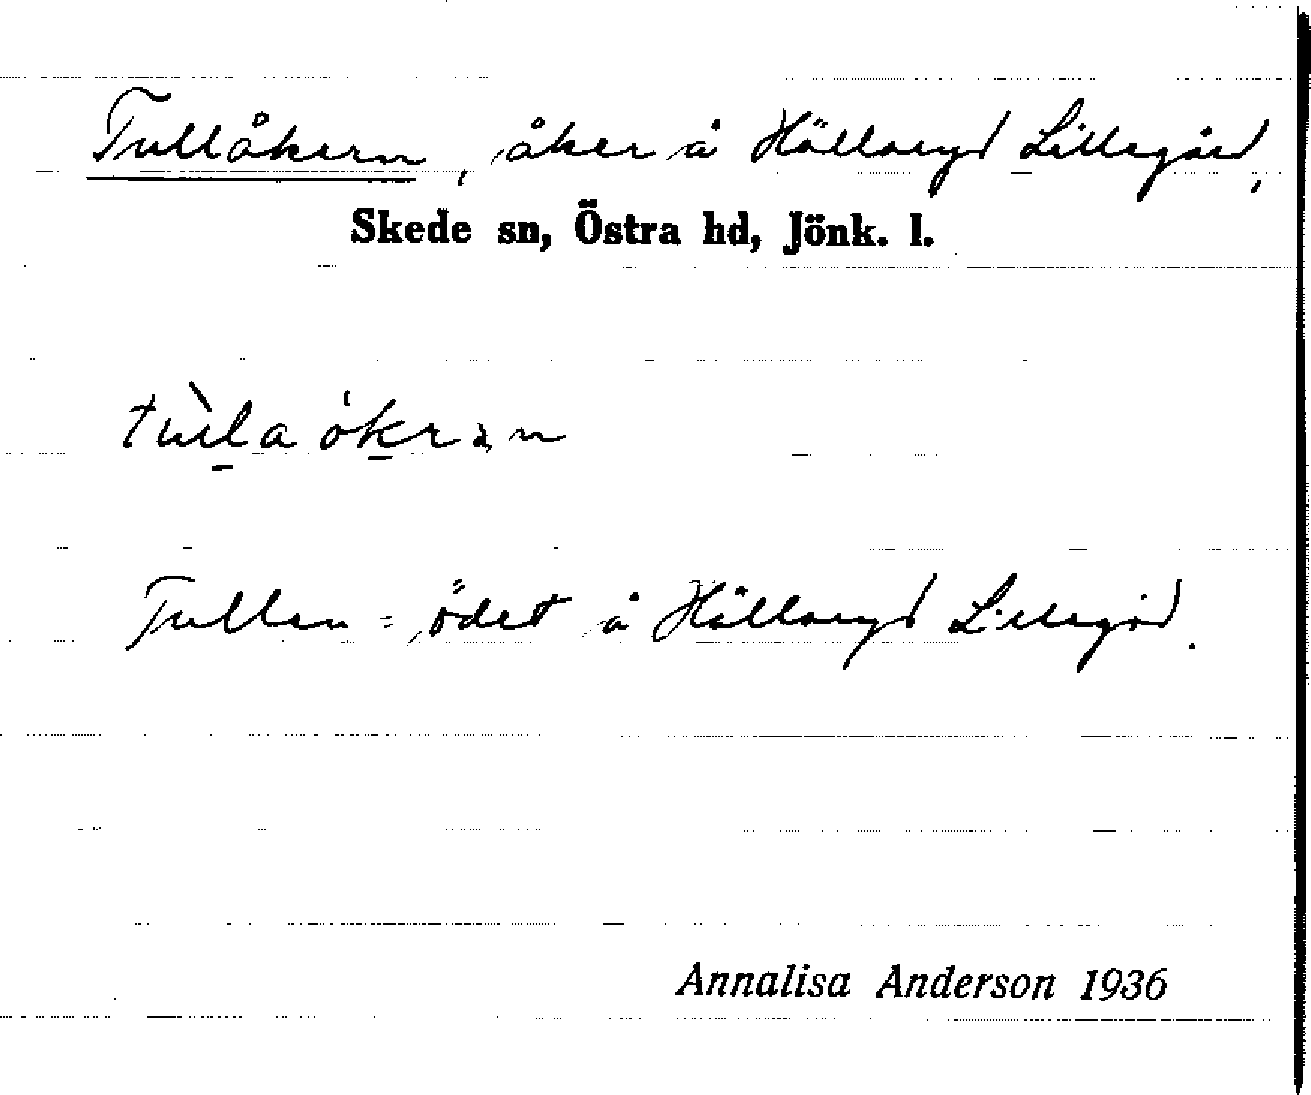 Tullåkern, åker å Hällaryd Lillegård,
Skede sn, Östra hd, Jönk. l.
tùlaókran
Tullen = ödet å Hällaryd Lillegård.
Annalisa Anderson 1936